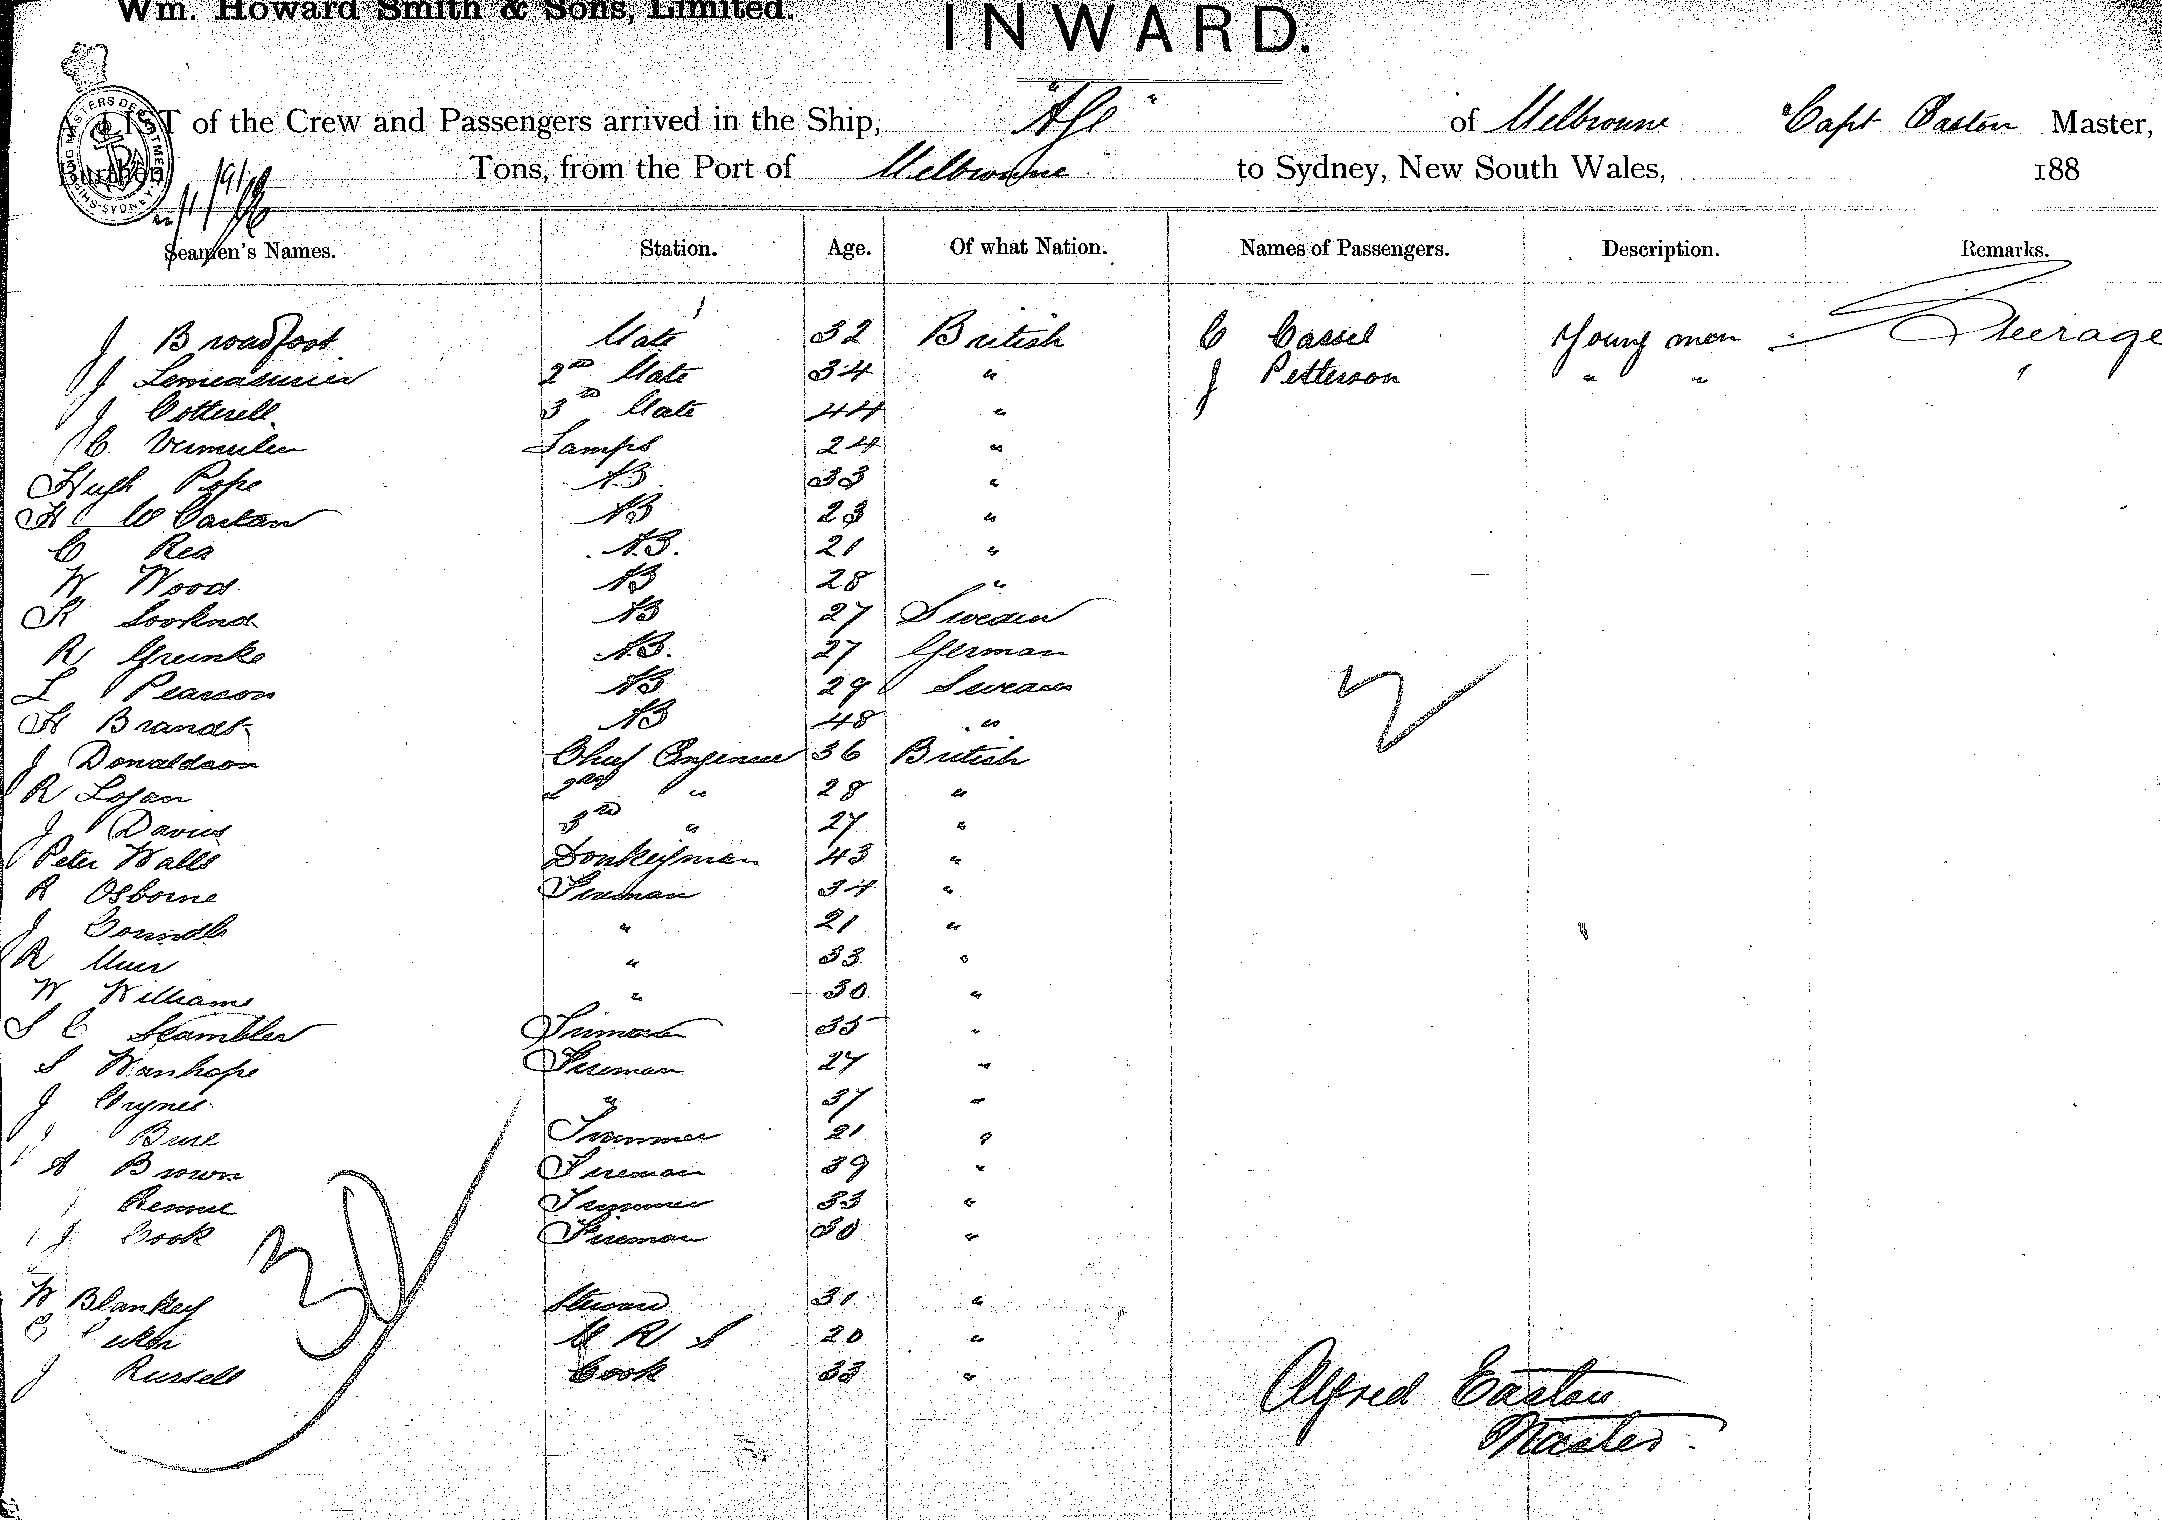 Wm. Howard Smith & Sons, Limited.
INWARD.
A LIST of the Crew and Passengers arrived in the Ship, "Age" of Melbourne Capt Easton Master,
Burthen Tons, from the Port of Melbourne to Sydney, New South Wales, 188
Seamen's Names. Station. Age. Of what Nation. Names of Passengers. Description. Remarks.
J Broadfoot Mate 32 British C Cassel Young men Steerage
J Lemeasurier 2nd Mate 34 " J Petterson " " "
J Cotterell 3rd Mate 44 "
C. Vermulen Lamps 24 "
Hugh Pope AB 33 "
H AB 23 "
C Rea A.B. 21 "
W Wood AB 28 "
K AB 27 Sweden
R Greinke A.B. 27 German
L Pearson AB 29 Sweden
H Brandt AB 48 "
J Donaldson Chief Engineer 36 British
R Logan 2nd " 28 "
J Davies 3rd " 27 "
Peter Walls Donkeyman 43 "
R Osborne Fireman 34 "
J " 21 "
R Muir " 33 "
W Williams " 30 "
S C Scambler Fireman 35 "
S Wanhope Fireman 27 "
J Grynes " 37 "
Trimmer 21 "
A Brown Fireman 39 "
Rennie Trimmer 33 "
J Cook Fireman 30 "
W Blankey Steward 31 "
20 "
J Russell Cook 33 "
30
2
Alfred Easton
Master.